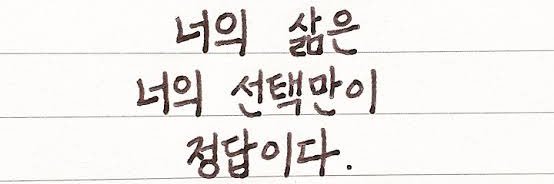 너의 삶은
너의 선택만이
정답이다.